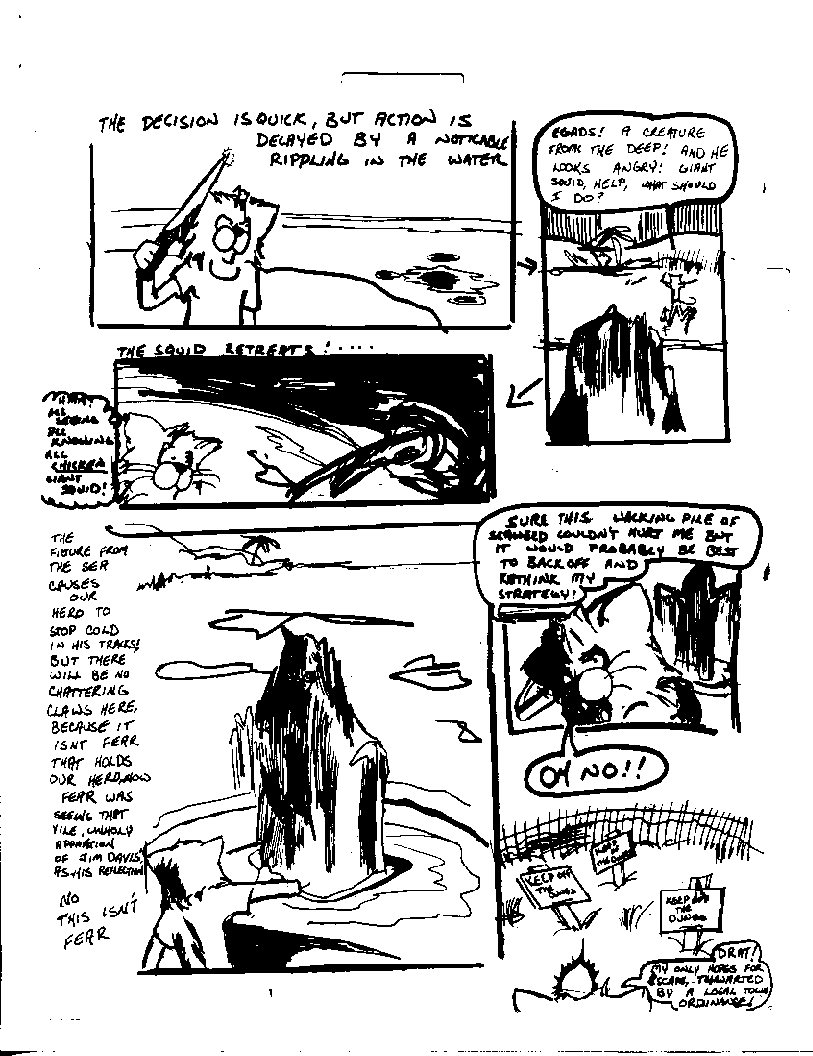 THE DECISION IS QUICK, BUT ACTION IS
DELAYED BY A NOTICABLE
RIPPLING IN THE WATER
EGADS! A CREATURE
FROM THE DEEP! AND HE
LOOKS ANGRY! GIANT
SQUID, HELP, WHAT SHOULD
I DO?
THE SQUID RETREATS!....
ALL
SEEING
ALL
KNOWING
ALL
CHICKEN
GIANT
SQUID!
THE
FIGURE FROM
THE SEA
CAUSES
OUR
HERO TO
STOP COLD
IN HIS TRACKS!
BUT THERE
WILL BE NO
CHATTERING
CLAWS HERE,
BECAUSE IT
ISNT FEAR
THAT HOLDS
OUR HERO, NOW
FEAR WAS
SEEING THAT
VILE, UNHOLY
APPARITION
OF JIM DAVIS'
AS HIS REFLECTION
NO
THIS ISN'T
FEAR
SURE THIS WALKING PILE OF
SEAWEED COULDN'T HURT ME BUT
IT WOULD PROBABLY BE BEST
TO BACK OFF AND
RETHINK MY
STRATEGY!
OH NO!!
KEEP OFF
THE DUNES
KEEP OFF
THE
DUNES
DRAT!
MY ONLY HOPES FOR
ESCAPE, THWARTED
BY A LOCAL TOWN
ORDINANCE!
1